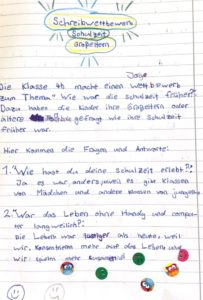 Schreibwettbewerb
Schulzeit
Großeltern
Die Klasse 4b macht einen Wettbewerb
zum Thema "Wie war die Schulzeit früher?"
Dazu haben die Kinder ihre Großeltern oder
ältere gefragt wie ihre Schulzeit
früher war.
Hier kommen die Fragen und Antworten:
1. "Wie hast du deine Schulzeit erlebt?"
Ja es war anders, weil es gab Klassen
von Mädchen und andere Klassen von
2. "War das Leben ohne Handy und compu-
ter langweilich?"
Die Leben war als heute, weil
wir, mehr auf das Leben und
wir mehr